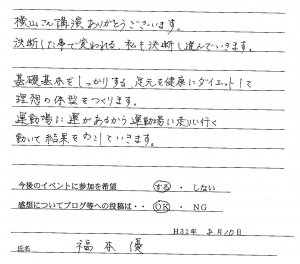 横山さん講演ありがとうございます。
決断した事で変われる、私も決断し進んでいきます。
基礎基本をしっかりする 足元を健康にダイエットして
理想の体型をつくります。
運動場に運があるから運動場に走りに行く
動いて結果をのこしていきます。
今後のイベントに参加を希望 する ・ しない
感想についてブログ等への投稿は・・ OK ・ NG
H31年 8月10日
氏名 福本 優